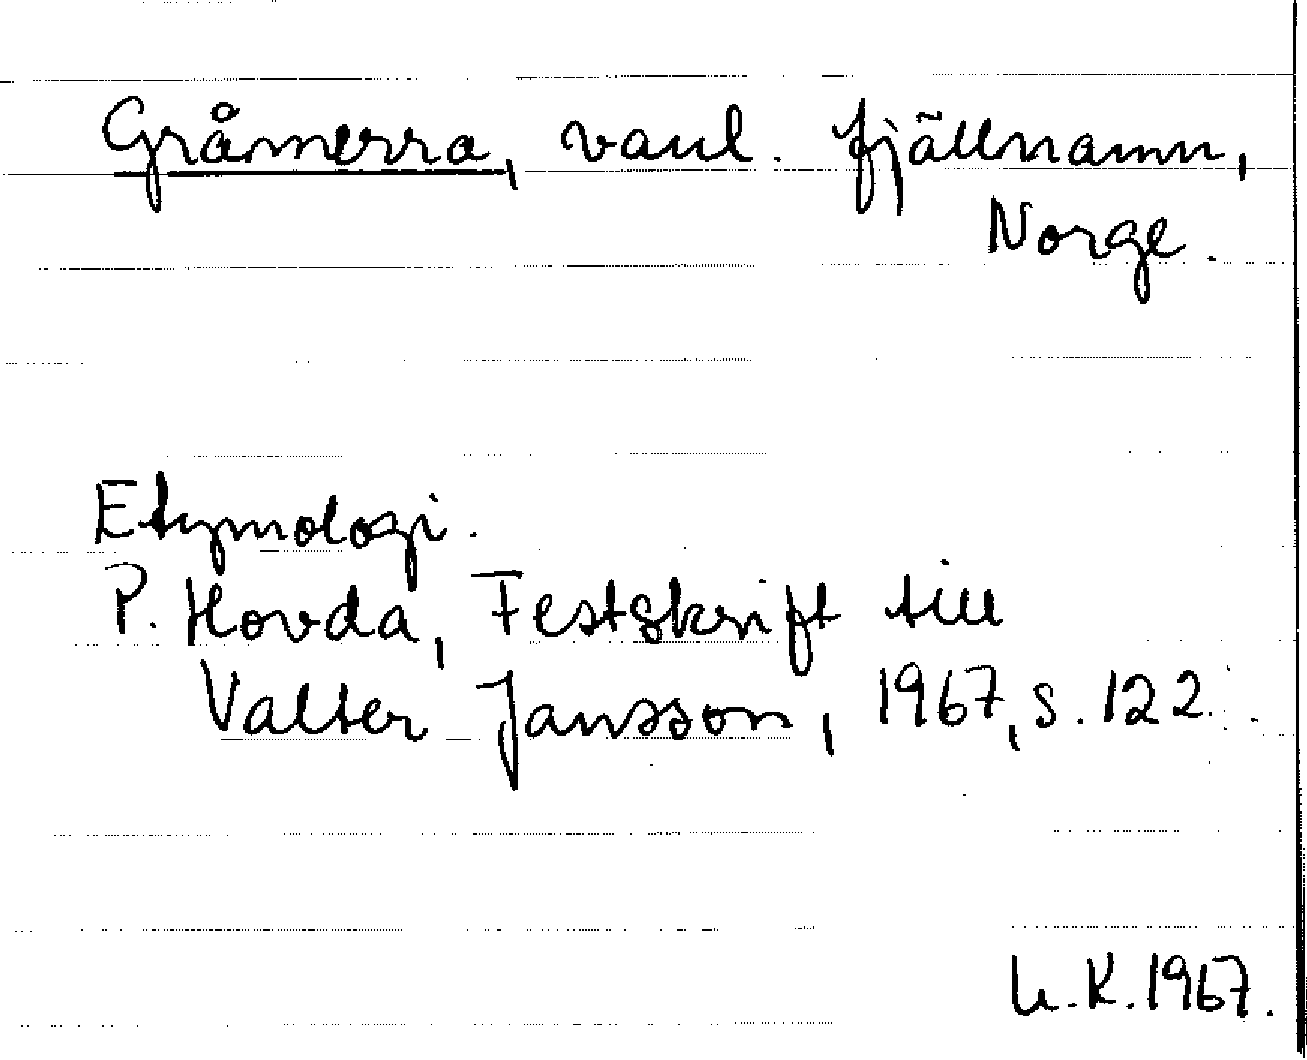 Gråmerra, vanl. fjällnamn,
Norge.
Etymologi.
P. Hovda, Festskrift till
Valter Jansson, 1967, s. 122.
K. 1967.